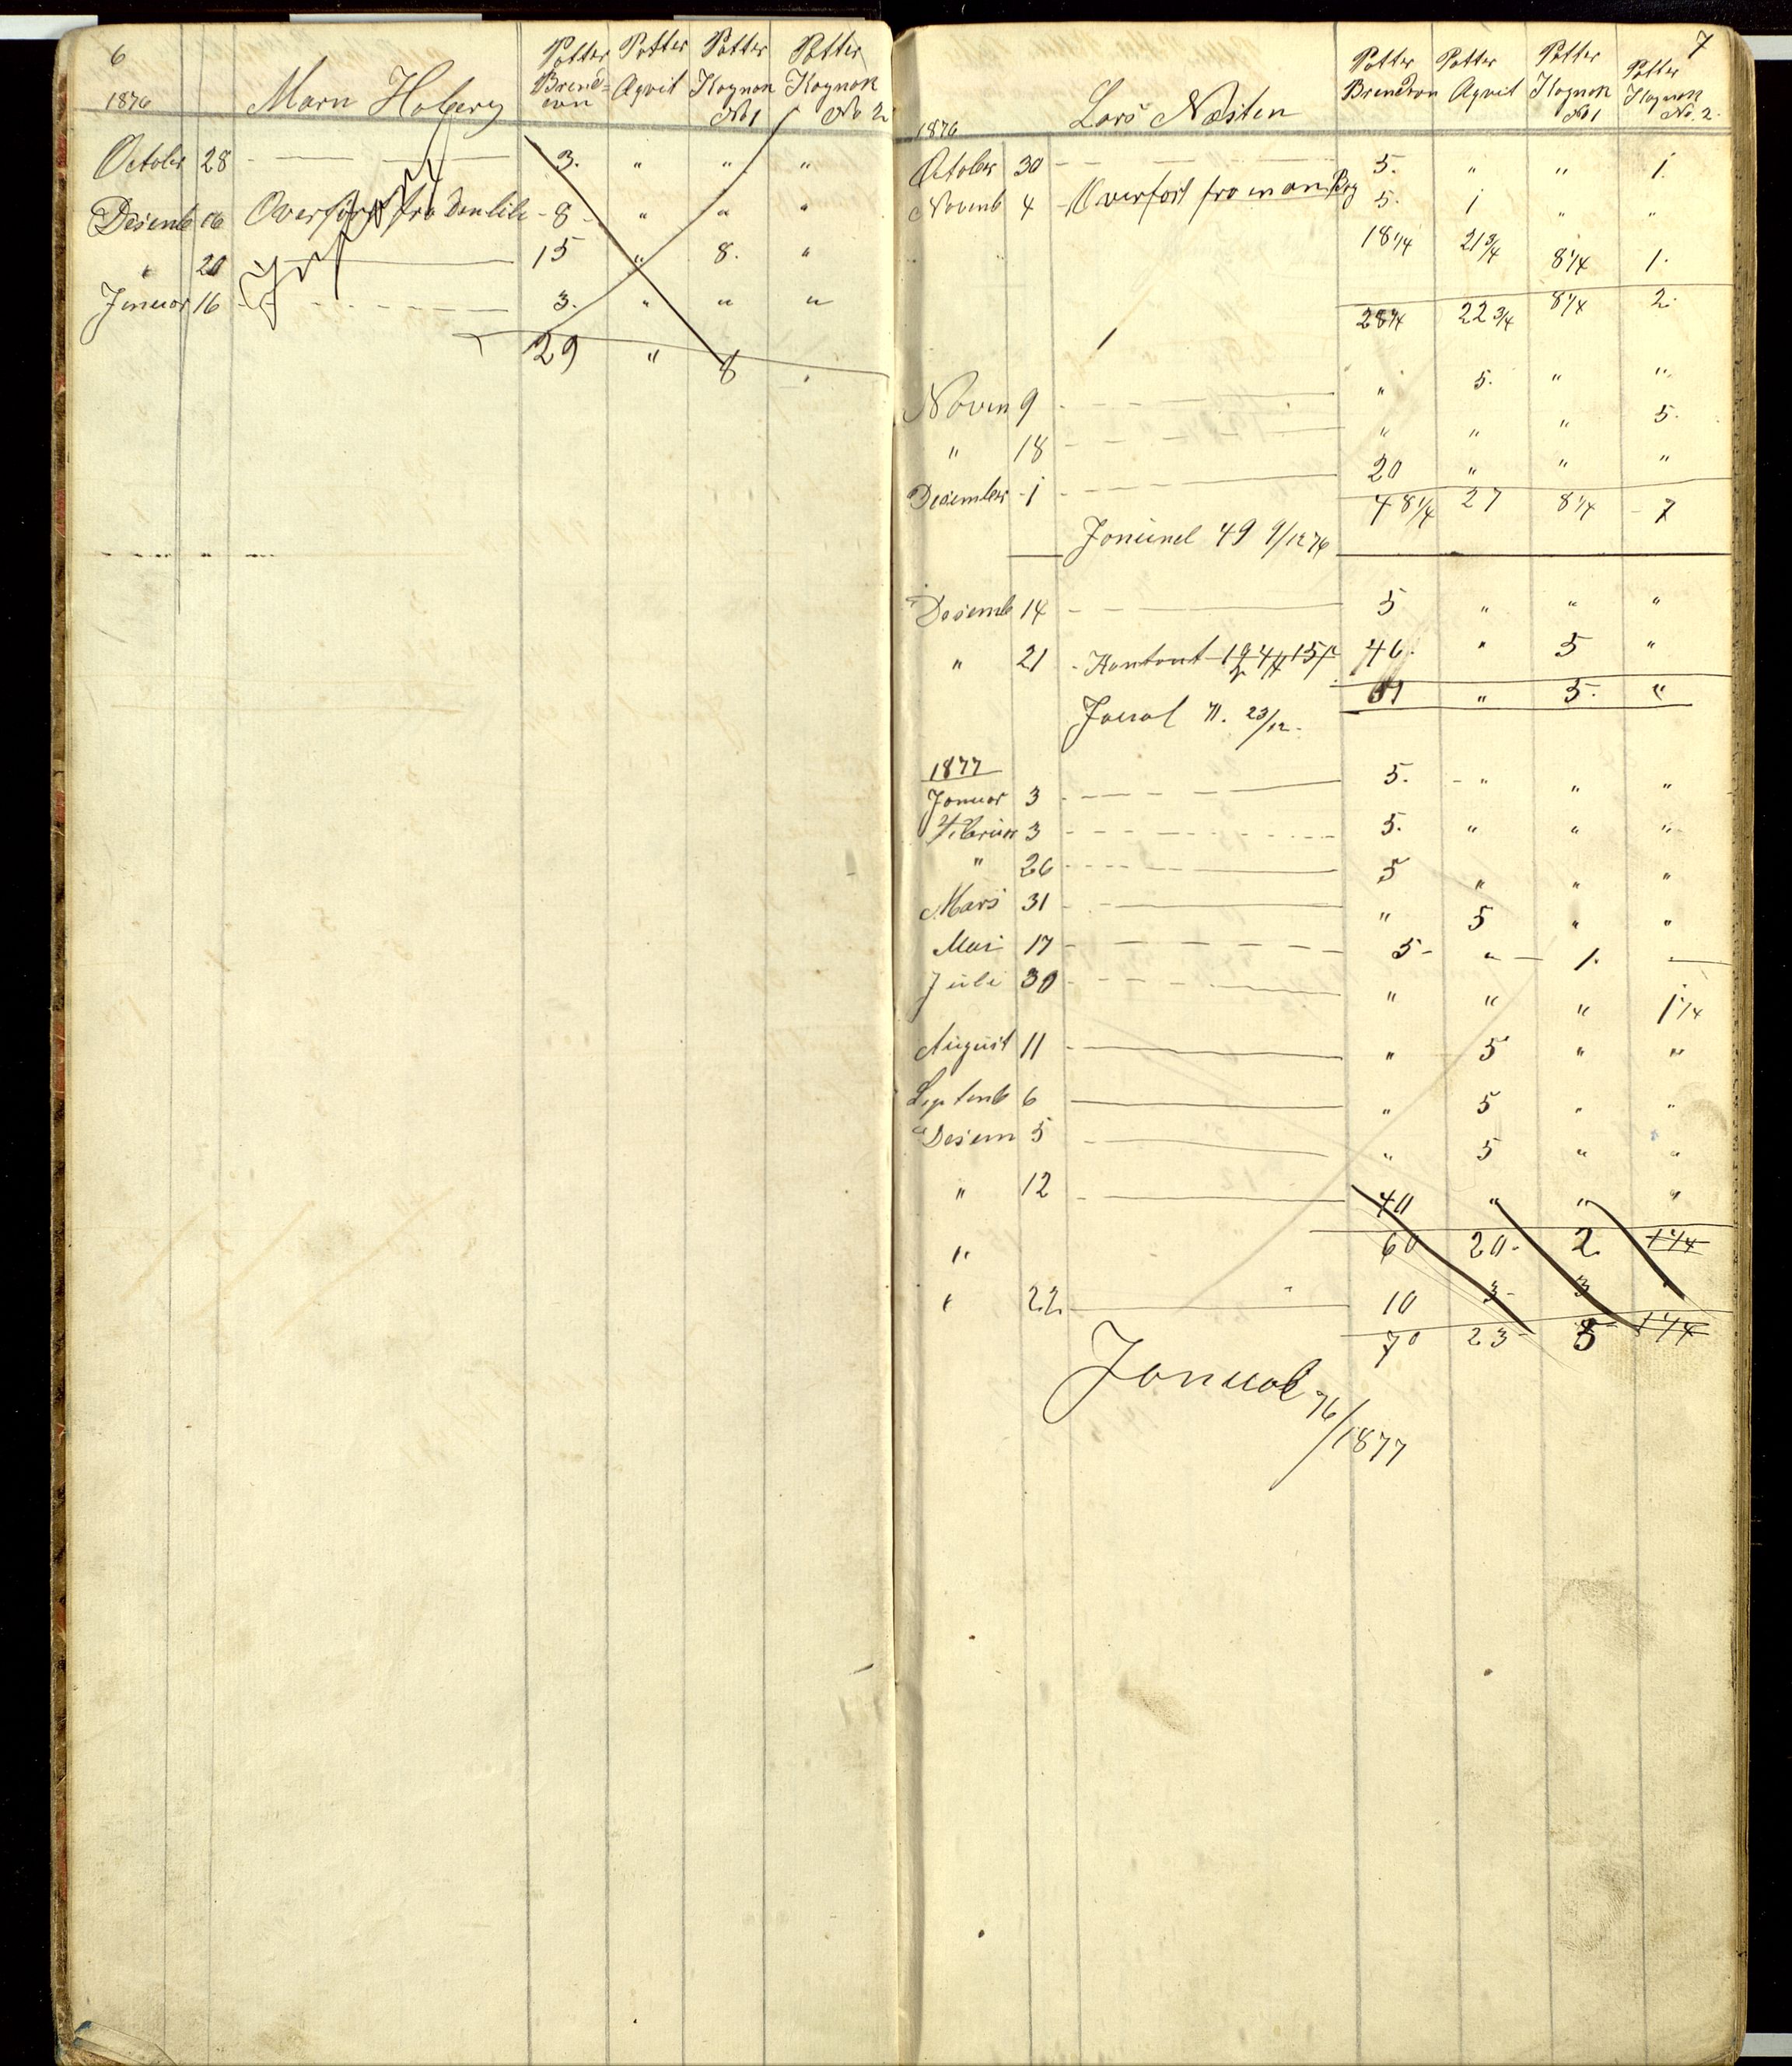 6
1876 Marn Hoberg Potter Brend= evin Potter Aqvit Potter Kognok No 1 Potter Kognok No 2
Octobr 28 3. " " "
Desemb 16 Overfört fra den lile 8 " " "
" 20 15 " 8. "
Januar 16 3. " " "
29 " 8 "
7
1876 Lars Næsten Potter Brendvon Potter Aqvit Potter Kognok No 1 Potter Kognok No. 2.
October 30 5. " " 1.
Novemb 4 Overfört fra man. Brg 5. 1 " "
18 1/4 21 3/4 8 1/4 1.
28 1/4 22 3/4 8 1/4 2.
Novem 9 " 5. " "
" 18 " " " 5.
Desember 1 20 " " "
48 1/4 27 8 1/4 7
49 1/12 76
Desemb 14 5 " " "
" 21 Kontont 46. " 5 "
" 5. "
23/12.
1877
Januar 3 5. " " "
Februar 3 5. " " "
" 26 5 " " "
Mars 31 " 5 " "
Mai 17 5 " 1.
Juli 30 " " " 1 1/4
August 11 " 5 " "
Septemb 6 " 5 " "
Desem 5 " 5 " "
" 12 40 " " "
" 60 20. 2 1 1/4
" 22 10 3 3 "
70 23 5 1 1/4
76/1877